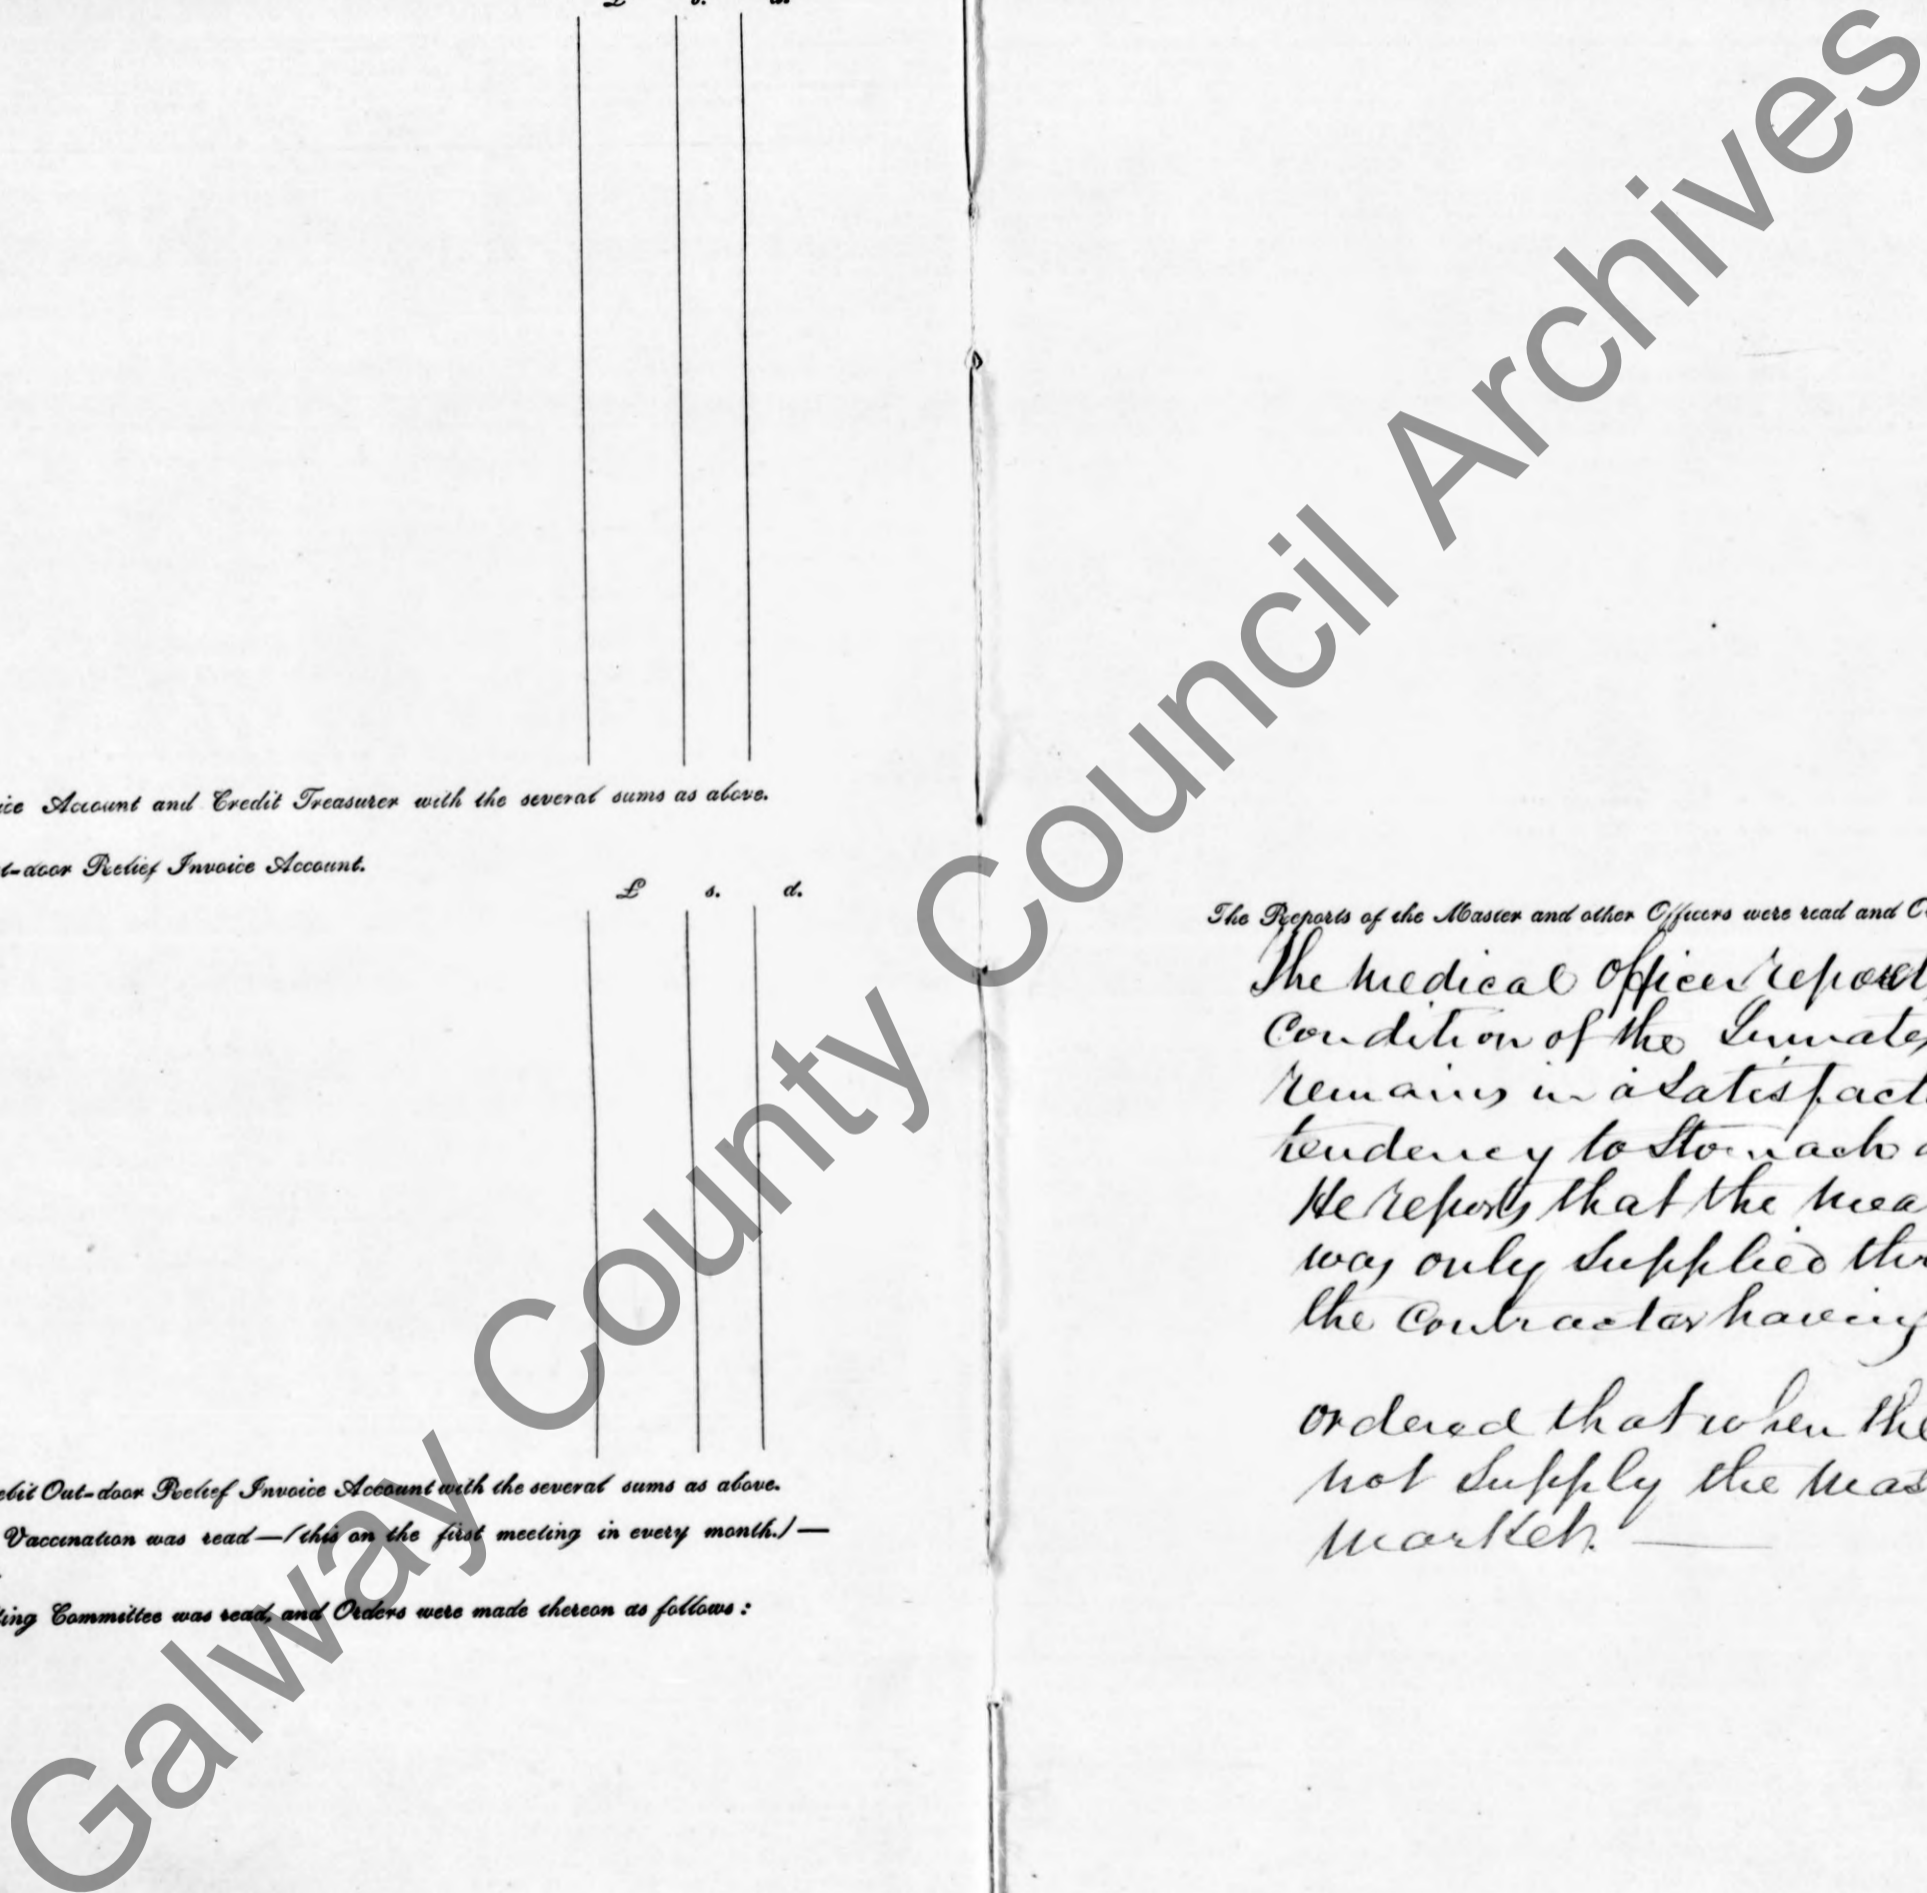 £ s. d.
ice Account and Credit Treasurer with the several sums as above.
t-door Relief Invoice Account.
£ s. d.
ebit Out-door Relief Invoice Account with the several sums as above.
Vaccination was read—(this on the first meeting in every month.)—
ting Committee was read, and Orders were made thereon as follows:
The Reports of the Master and other Officers were read and O
The Medical Officer report
Condition of the Inmates
remains in a Satisfact
tendency to Stomach a
He reports that the mea
was only Supplied thr
the Contractor having
ordered that when the
not Supply the Mas
market. —
Galway County Council Archives